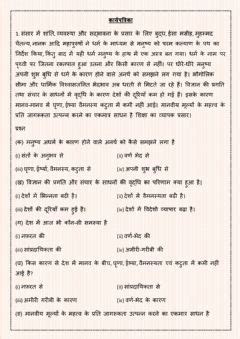 कार्यपत्रिका
1. संसार में शांति, व्यवस्था और सद्भावना के प्रसार के लिए बुद्ध, ईसा मसीह, मुहम्मद
चैतन्य, नानक आदि महापुरुषों ने धर्म के माध्यम से मनुष्य को परम कल्याण के पथ का
निर्देश किया, किंतु बाद में यही धर्म मनुष्य के हाथ में एक अस्त्र बन गया। धर्म के नाम पर
पृथ्वी पर जितना रक्तपात हुआ उतना और किसी कारण से नहीं। पर धीरे-धीरे मनुष्य
अपनी शुभ बुधि से धर्म के कारण होने वाले अनर्थ को समझने लग गया है। भौगोलिक
सीमा और धार्मिक विश्वासजनित भेदभाव अब धरती से मिटते जा रहे हैं। विज्ञान की प्रगति
तथा संचार के साधनों में वृद्धि के कारण देशों की दूरियाँ कम हो गई हैं। इसके कारण
मानव-मानव में घृणा, ईर्ष्या वैमनस्य कटुता में कमी नहीं आई। मानवीय मूल्यों के महत्व के
प्रति जागरूकता उत्पन्न करने का एकमात्र साधन है शिक्षा का व्यापक प्रसार।
प्रश्न
(क) मनुष्य अधर्म के कारण होने वाले अनर्थ को कैसे समझने लगा है
(i) संतों के अनुभव से (ii) वर्ण भेद से
(iii) घृणा, ईर्ष्या, वैमनस्य, कटुता से (iv) अपनी शुभ बुधि से
(ख) विज्ञान की प्रगति और संचार के साधनों की वृद्धि का परिणाम क्या हुआ है।
(i) देशों में भिन्नता बढ़ी है। (ii) देशों में वैमनस्यता बढ़ी है।
(iii) देशों की दूरियाँ कम हुई है। (iv) देशों में विदेशी व्यापार बढ़ा है।
(ग) देश में आज भी कौन-सी समस्या है
(i) नफ़रत की (ii) वर्ण-भेद की
(iii) सांप्रदायिकता की (iv) अमीरी-गरीबी की
(घ) किस कारण से देश में मानव के बीच, घृणा, ईर्ष्या, वैमनस्यता एवं कटुता में कमी नहीं
आई है?
(i) नफ़रत से (ii) सांप्रदायिकता से
(iii) अमीरी गरीबी के कारण (iv) वर्ण-भेद के कारण
(ङ) मानवीय मूल्यों के महत्व के प्रति जागरूकता उत्पन्न करने का एकमात्र साधन है